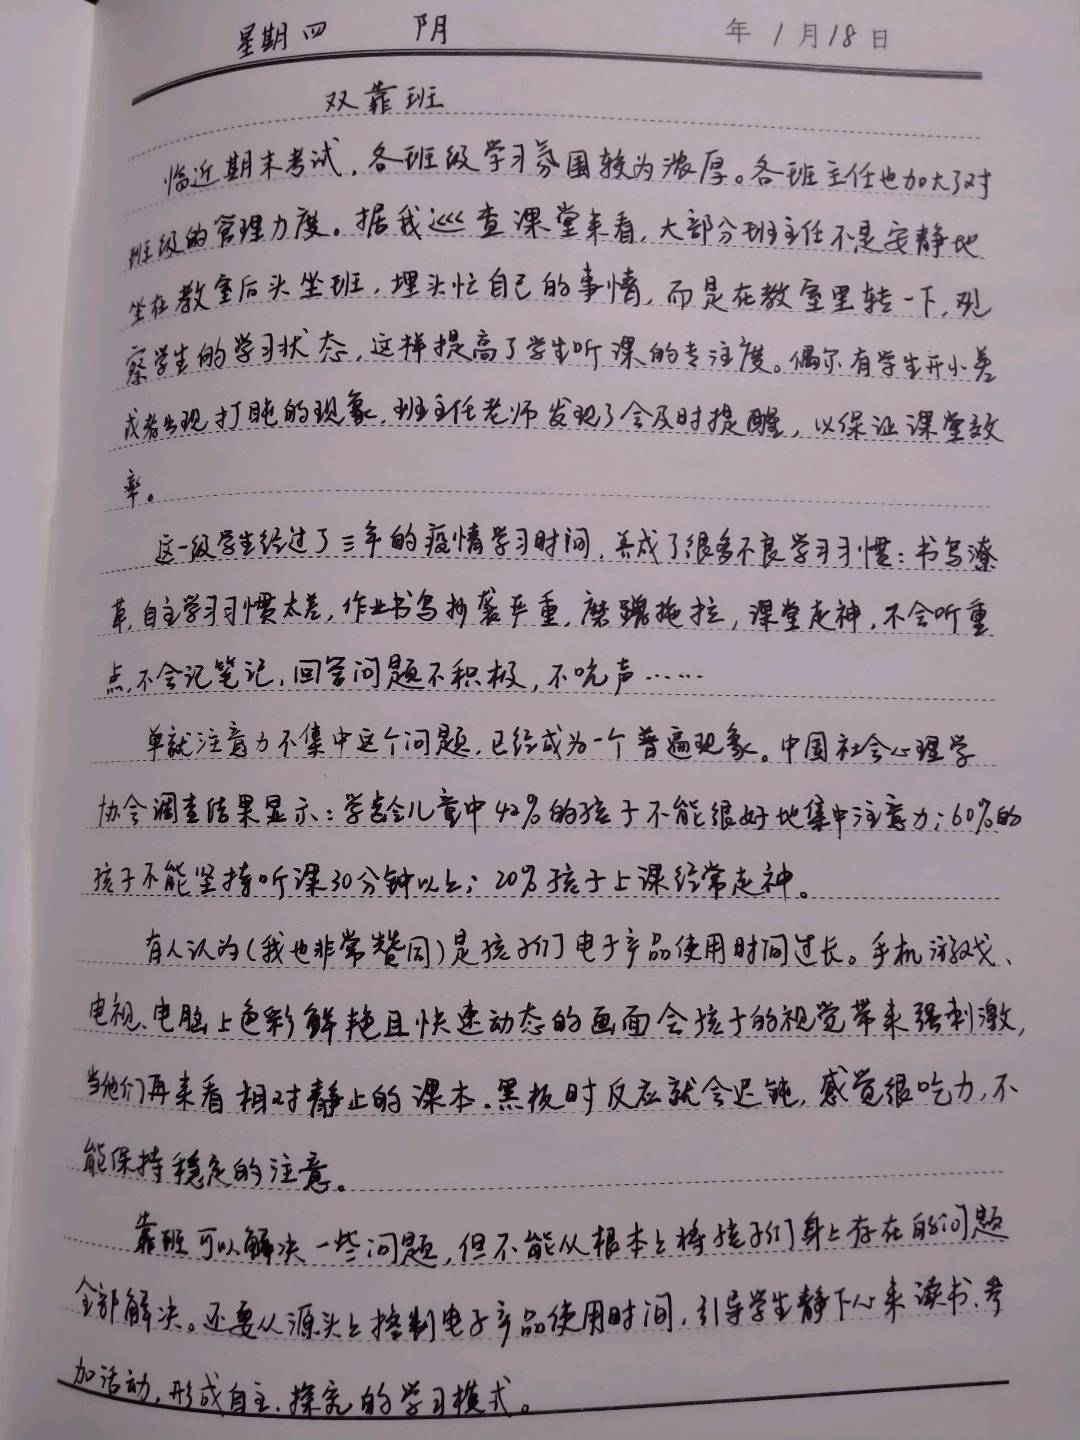 星期四 阴 年1月18日
双靠班
临近期末考试，各班级学习氛围较为浓厚。各班主任也加大了对
班级的管理力度。据我巡查课堂来看，大部分班主任不是安静地
坐在教室后头坐班，埋头忙自己的事情，而是在教室里转一下，观
察学生的学习状态，这样提高了学生听课的专注度。偶尔有学生开小差
或者出现打盹的现象，班主任老师发现了会及时提醒，以保证课堂效
率。
这一级学生经过了三年的疫情学习时间，养成了很多不良学习习惯：书写潦
草，自主学习习惯太差，作业书写抄袭严重，磨蹭拖拉，课堂走神，不会听重
点，不会记笔记，回答问题不积极，不吭声……
单就注意力不集中这个问题，已经成为一个普遍现象。中国社会心理学
协会调查结果显示：学龄儿童中42%的孩子不能很好地集中注意力；60%的
孩子不能坚持听课30分钟以上；20%孩子上课经常走神。
有人认为（我也非常赞同）是孩子们电子产品使用时间过长。手机游戏、
电视、电脑上色彩鲜艳且快速动态的画面会孩子的视觉带来强刺激，
当他们再来看相对静止的课本、黑板时反应就会迟钝，感觉很吃力，不
能保持稳定的注意。
靠班可以解决一些问题，但不能从根本上将孩子们身上存在的问题
全部解决。还要从源头上控制电子产品使用时间，引导学生静下心来读书、参
加活动，形成自主、探究的学习模式。